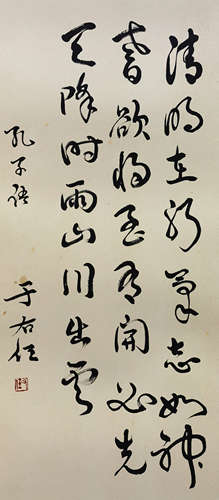 清明在躬气志如神
耆欲将至有开必先
天降时雨山川出云
孔子语
于右任